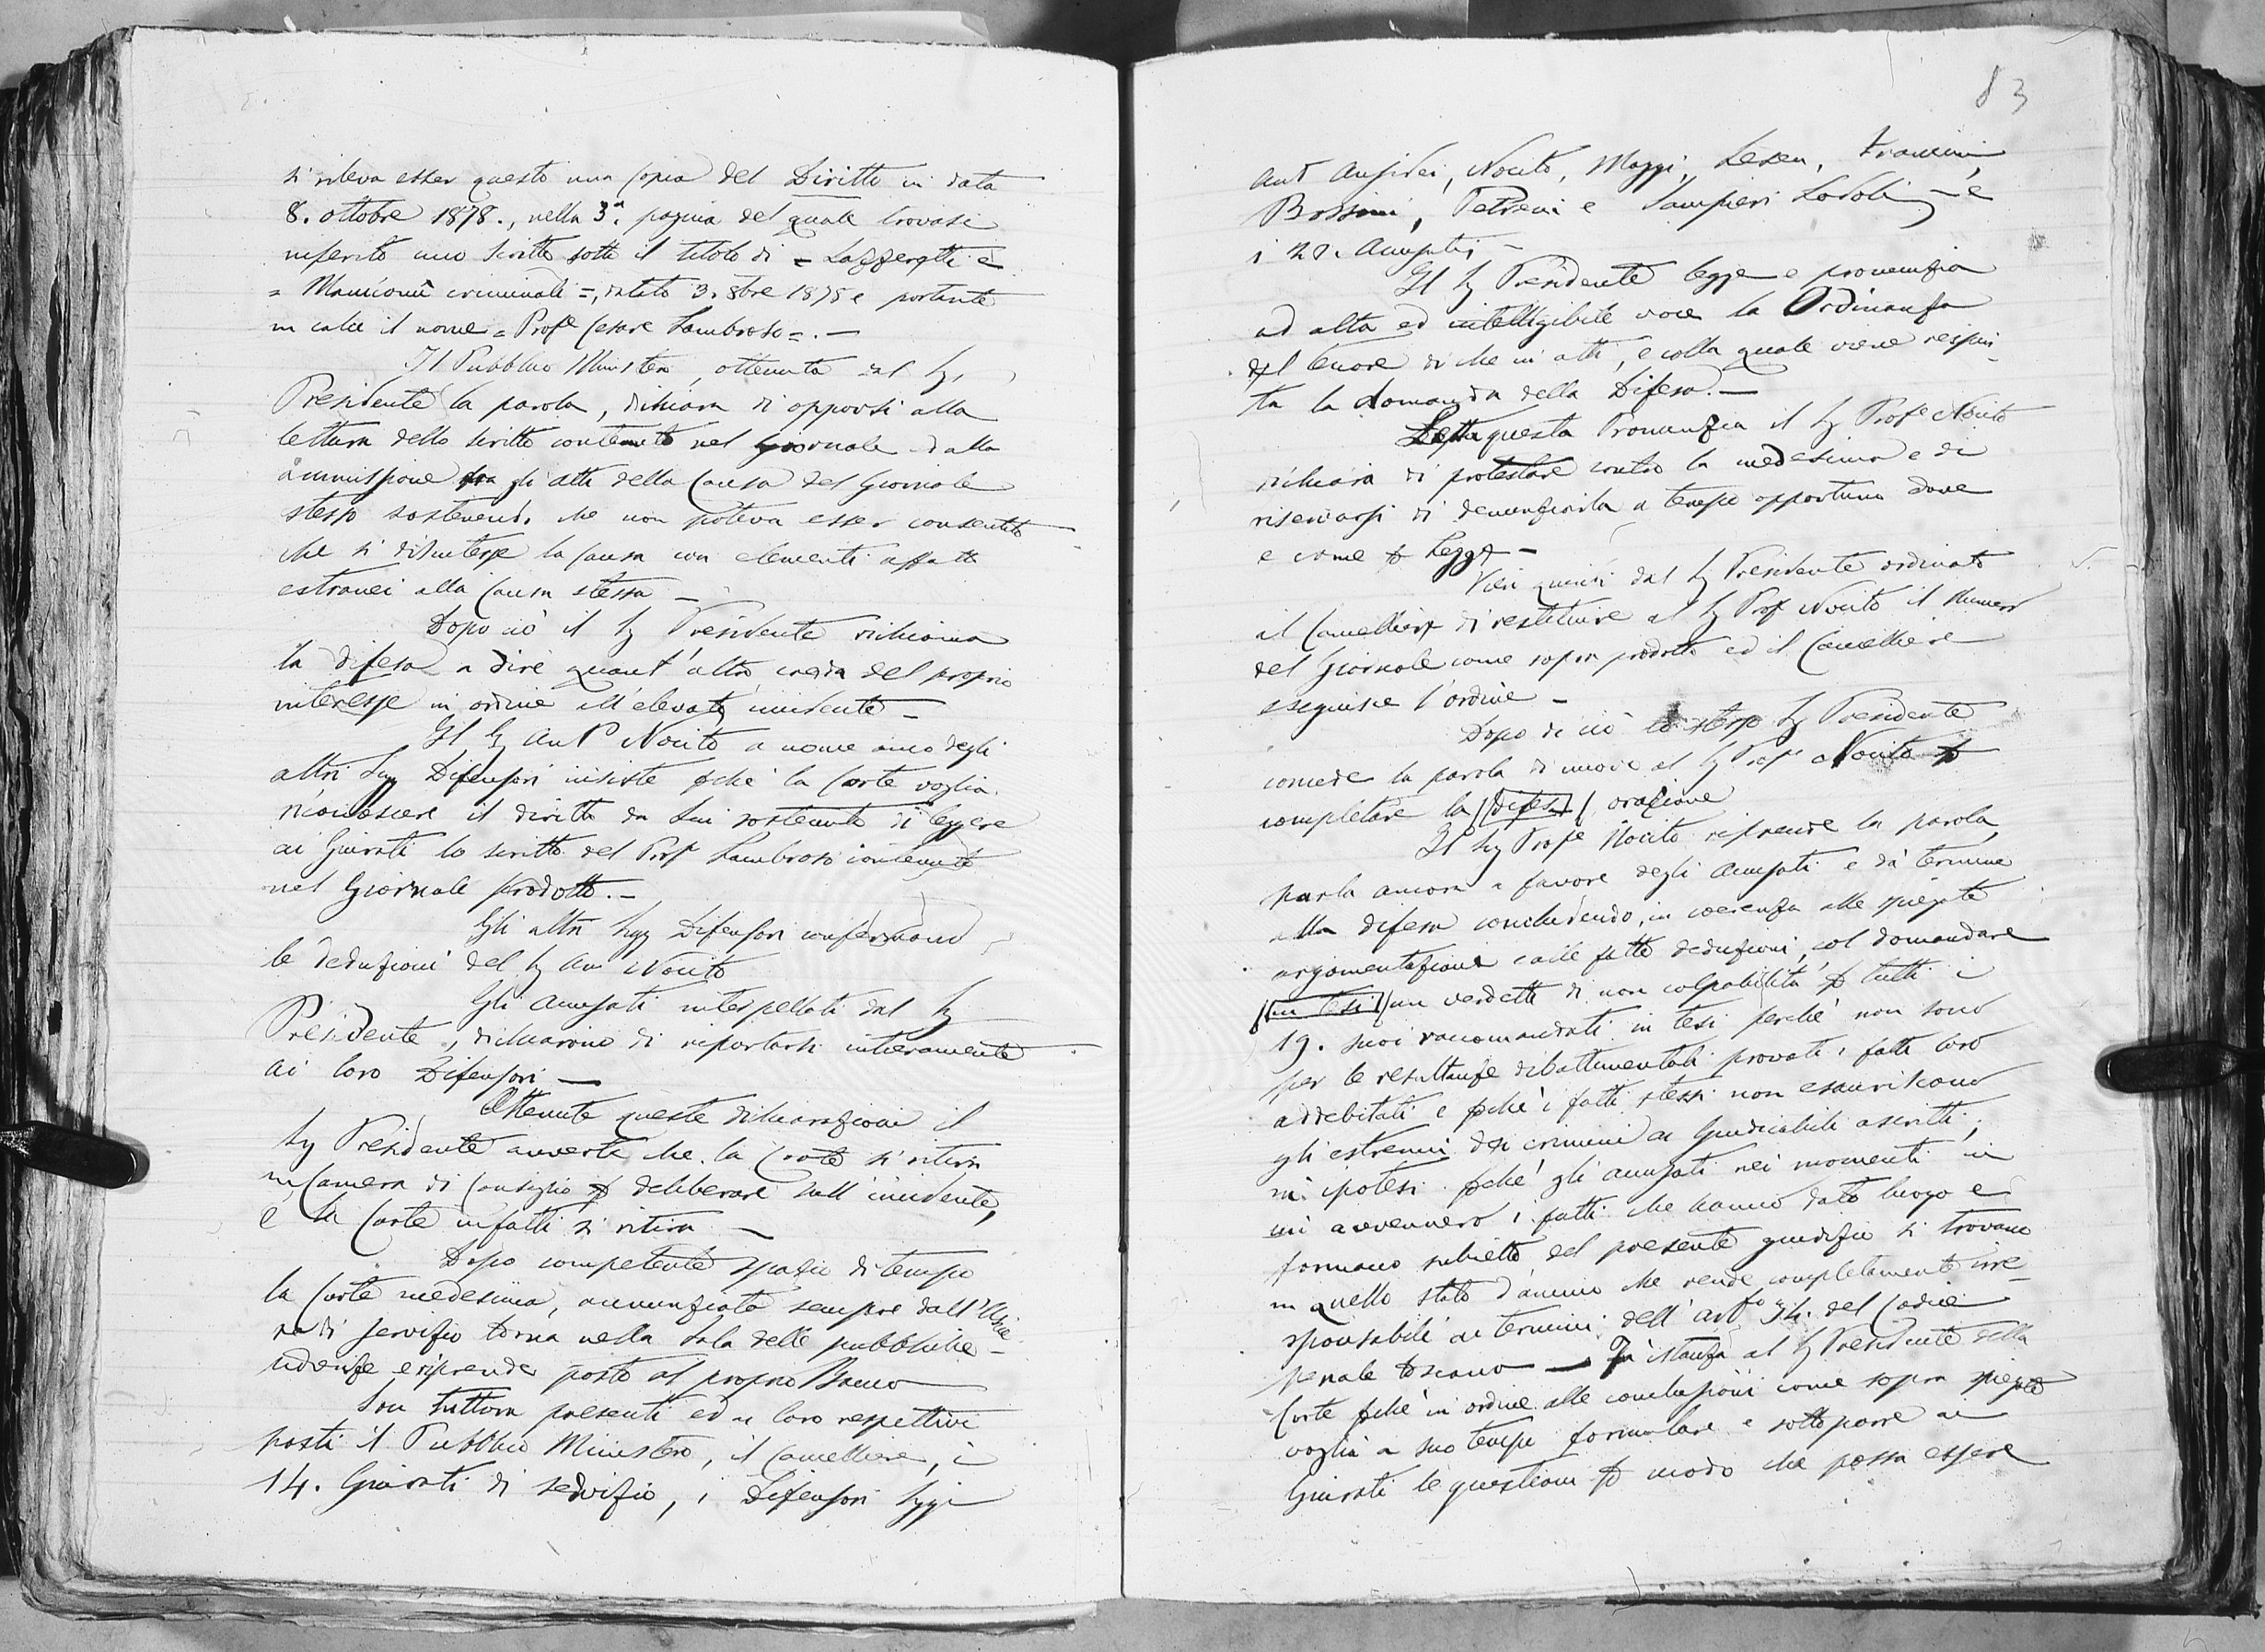 si rileva esser questo una copia del Diritto in data
8. ottobre 1878., nella 3ª. pagina del quale trovasi
inserito uno scritto sotto il titolo di = Lazzeretti e
= Manicomi criminali =, datato 3. 8bre 1878 e portante
in calce il nome = Profe Cesare Lombroso =. —
Il Pubblico Ministero, ottenuta dal Sig.
Presidente la parola, dichiara di opporsi alla
lettura dello scritto contenuto nel giornale e alla
ammissione fra gli atti della Causa del Giornale
stesso sostenendo che non poteva esser consentito
che si discutesse la Causa con elementi affatto
estranei alla Causa stessa —
Dopo ciò il Sig Presidente richiama
la difesa a dire quant'altro creda del proprio
interesse in ordine all'elevato incidente —
Il Sig Avv Nocito a nome anco degli
altri Sigg Difensori insiste pche la Corte voglia
riconoscere il diritto da Lui sostenuto di leggere
ai Giurati lo scritto del Profe Lombroso contenuto
nel Giornale prodotto. —
Gli altri Sigg Difensori confermano
le deduzioni del Sig Avv Nocito
Gli accusati interpellati dal Sig
Presidente, dichiarono di riportarsi intieramente
ai loro Difensori —
Ottenute queste dichiarazioni il
Sig Presidente avverte che la Corte si ritira
in Camera di Consiglio p deliberare sull'incidente,
e la Corte infatti si ritira —
Dopo competente spazio di tempo
la Corte medesima, annunziata sempre dall'Uscie-
re di servizio torna nella Sala delle pubbliche
udienze e riprende posto al proprio Banco
Son tuttora presenti ed ai loro respettivi
posti il Pubblico Ministero, il Cancelliere, i
14. Giurati di servizio, i Difensori Sigg
83
Avv Ansidei, Nocito, Maggi, Lesen,
Petreni e Sampieri Lodoli — e
i accusati —
Il Sig Presidente legge e pronunzia
ad alta ed intelligibile voce la Ordinanza
del tenore di che in atti, e colla quale viene respin-
ta la domanda della Difesa. —
Letta questa Pronunzia il Sig Profe Nocito
dichiara di protestare contro la medesima e di
riservarsi di denunziarla a tempo opportuno dove
e come p Legge —
Vien quindi dal Sig Presidente ordinato
al Cancelliere di restituire al Sig Prof Nocito il Numero
del Giornale come sopra prodotto ed il Cancelliere
eseguisce l'ordine —
Dopo di ciò lo stesso Sig Presidente
concede la parola di nuovo al Sig Profe Nocito p
completare la (difesa) orazione
Il Sig Profe Nocito riprende la parola,
parla ancora a favore degli accusati e dà termine
alla difesa concludendo, in coerenza alle spiegate
argomentazioni e alle fatte deduzioni, col domandare
(in tesi) un verdetto di non colpabilità p tutti i
19. suoi raccomandati in tesi perchè non sono
per le resultanze dibattimentali provati i fatti loro
addebitati e pchè i fatti stessi non esauriscono
gli estremi dei crimini ai Giudicabili ascritti,
in ipotesi pchè gli accusati nei momenti in
cui avvennero i fatti che hanno dato luogo e
formano subietto del presente giudizio si trovano
in quello stato d'animo che rende completamente irre-
sponsabili ai termini dell'arto 34. del Codice
penale toscano — Fa istanza al Sig Presidente della
Corte pchè in ordine alle conclusioni come sopra spiegate
voglia a suo tempo formulare e sottoporre ai
Giurati le questioni p modo che possa essere